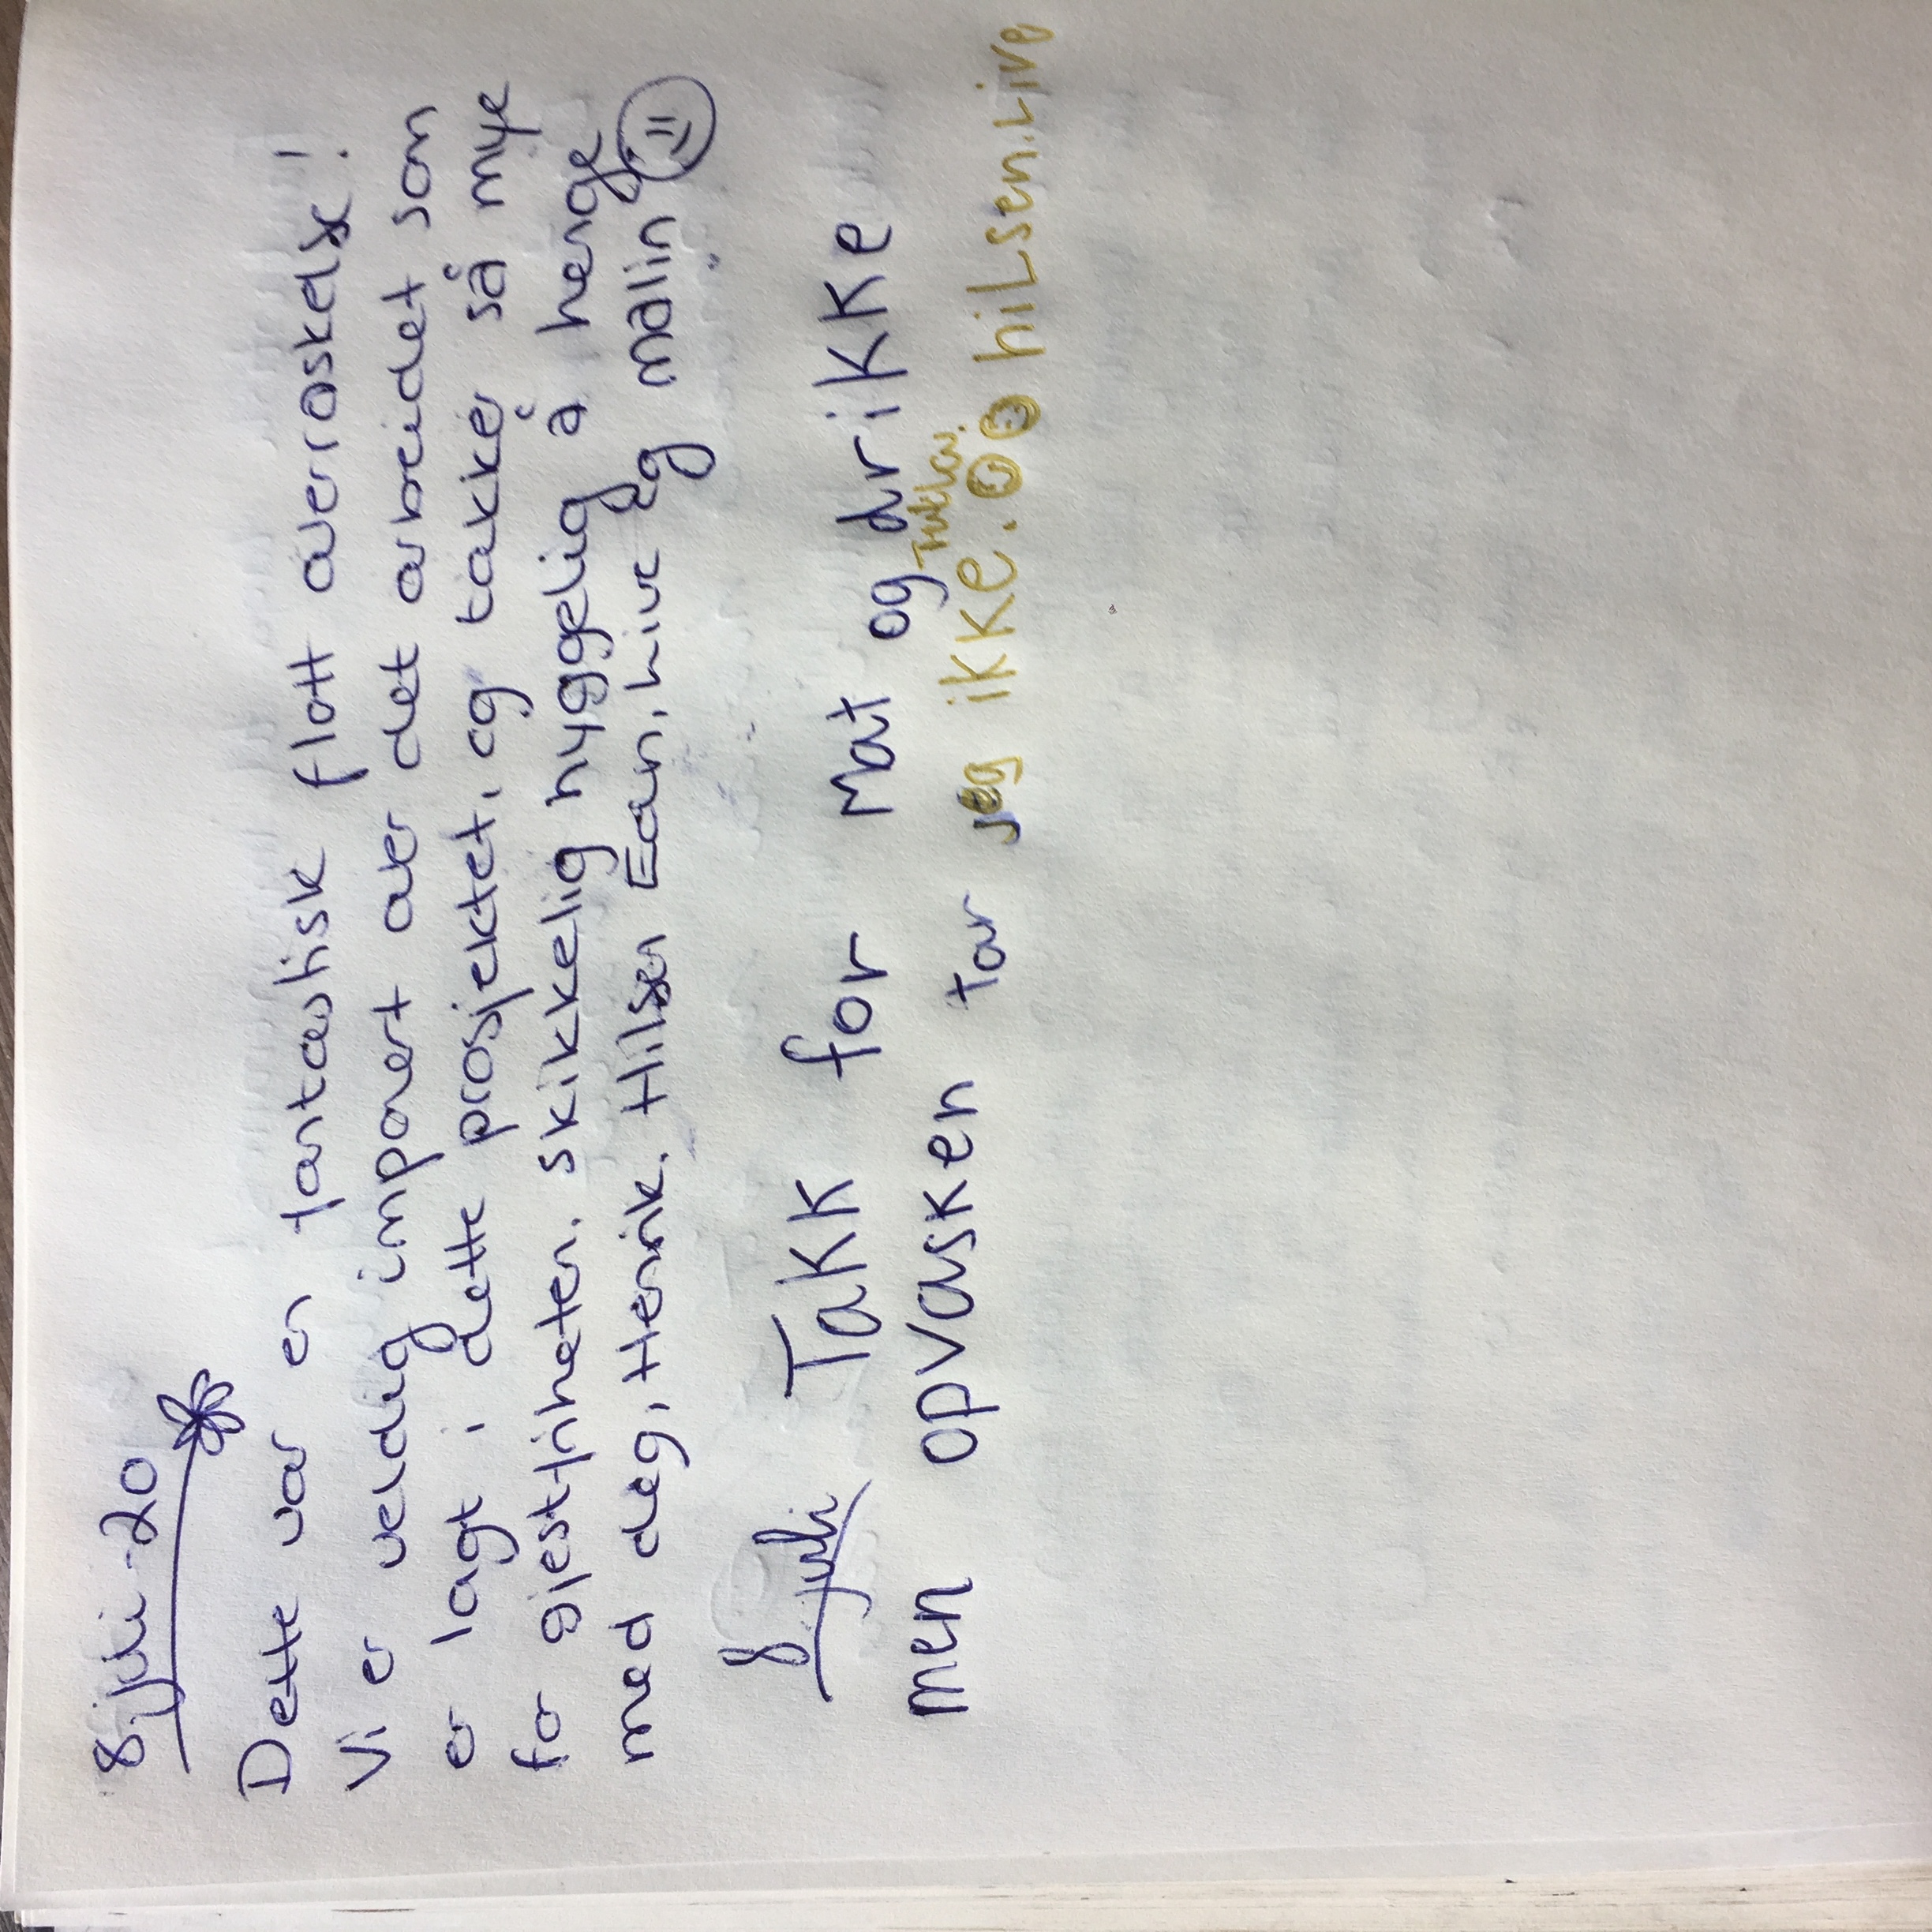 8. juli -20
Dette var en fantastisk flott overraskelse!
Vi er veldig imponert over det arbeidet som
er lagt i dette prosjektet, og takker så mye
for gjestfriheten. Skikkelig hyggelig å henge
med deg, Henrik. Hilsen Ean, Live og Malin
8 juli Takk for mat og drikke
men opvasken tar jeg ikke. Tulla. hilsen.Live